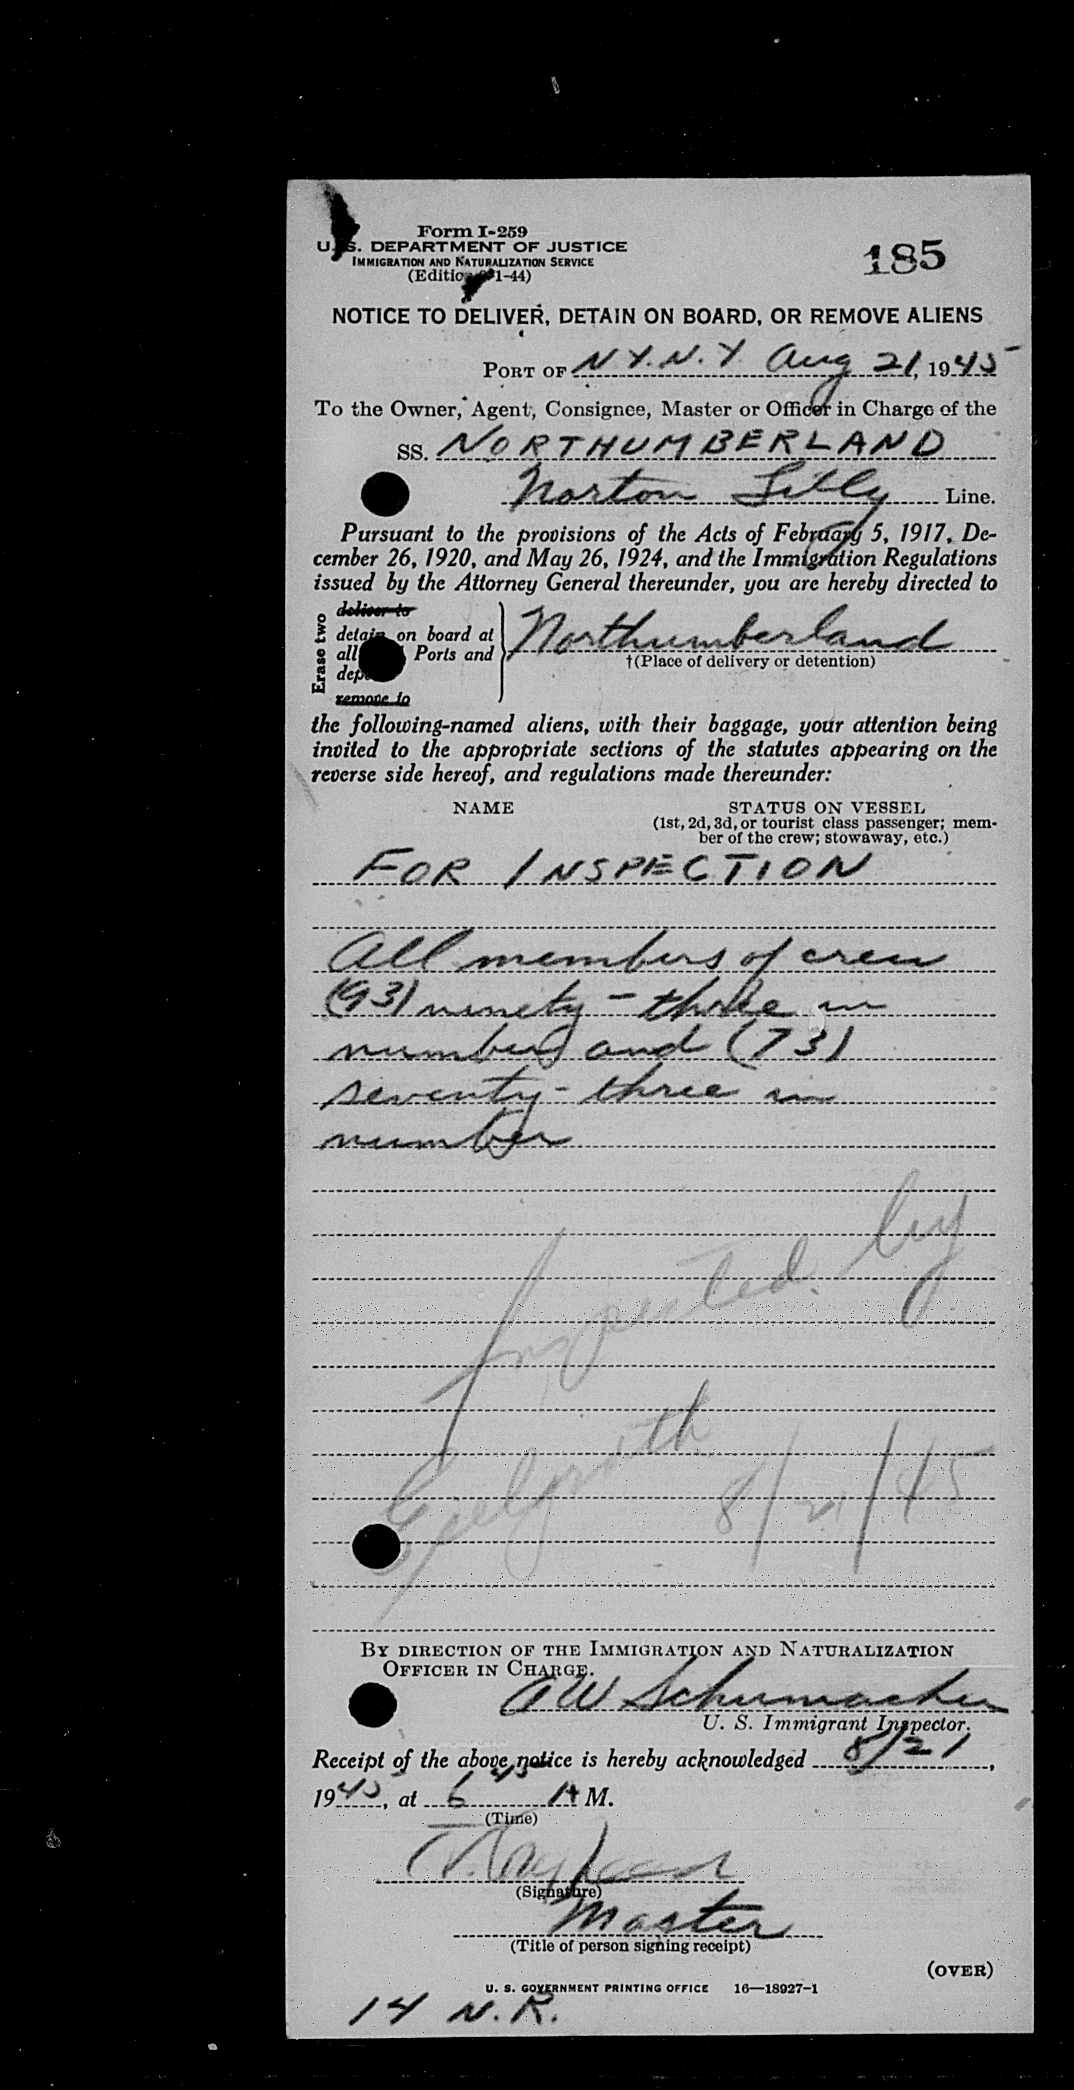 Form I-259
U. S. DEPARTMENT OF JUSTICE
IMMIGRATION AND NATURALIZATION SERVICE
(Edition 1-44)
185
NOTICE TO DELIVER, DETAIN ON BOARD, OR REMOVE ALIENS
PORT OF N.Y. N.Y. Aug 21, 1945
To the Owner, Agent, Consignee, Master or Officer in Charge of the
SS. NORTHUMBERLAND
Norton Lilly Line.
Pursuant to the provisions of the Acts of February 5, 1917, De-
cember 26, 1920, and May 26, 1924, and the Immigration Regulations
issued by the Attorney General thereunder, you are hereby directed to
Erase two
deliver to
detain on board at
all Ports and
remove to
Northumberland
†(Place of delivery or detention)
the following-named aliens, with their baggage, your attention being
invited to the appropriate sections of the statutes appearing on the
reverse side hereof, and regulations made thereunder:
NAME
STATUS ON VESSEL
(1st, 2d, 3d, or tourist class passenger; mem-
ber of the crew; stowaway, etc.)
FOR INSPECTION
All members of crew
(93) ninety-three in
number and (73)
seventy-three in
number
Inspected by
8/21/45
BY DIRECTION OF THE IMMIGRATION AND NATURALIZATION
OFFICER IN CHARGE.
A W Schumacher
U. S. Immigrant Inspector.
Receipt of the above notice is hereby acknowledged 8/21,
1945, at 6 45 A M.
(Time)
(Signature)
Master
(Title of person signing receipt)
(OVER)
U. S. GOVERNMENT PRINTING OFFICE 16—18927-1
14 N.R.